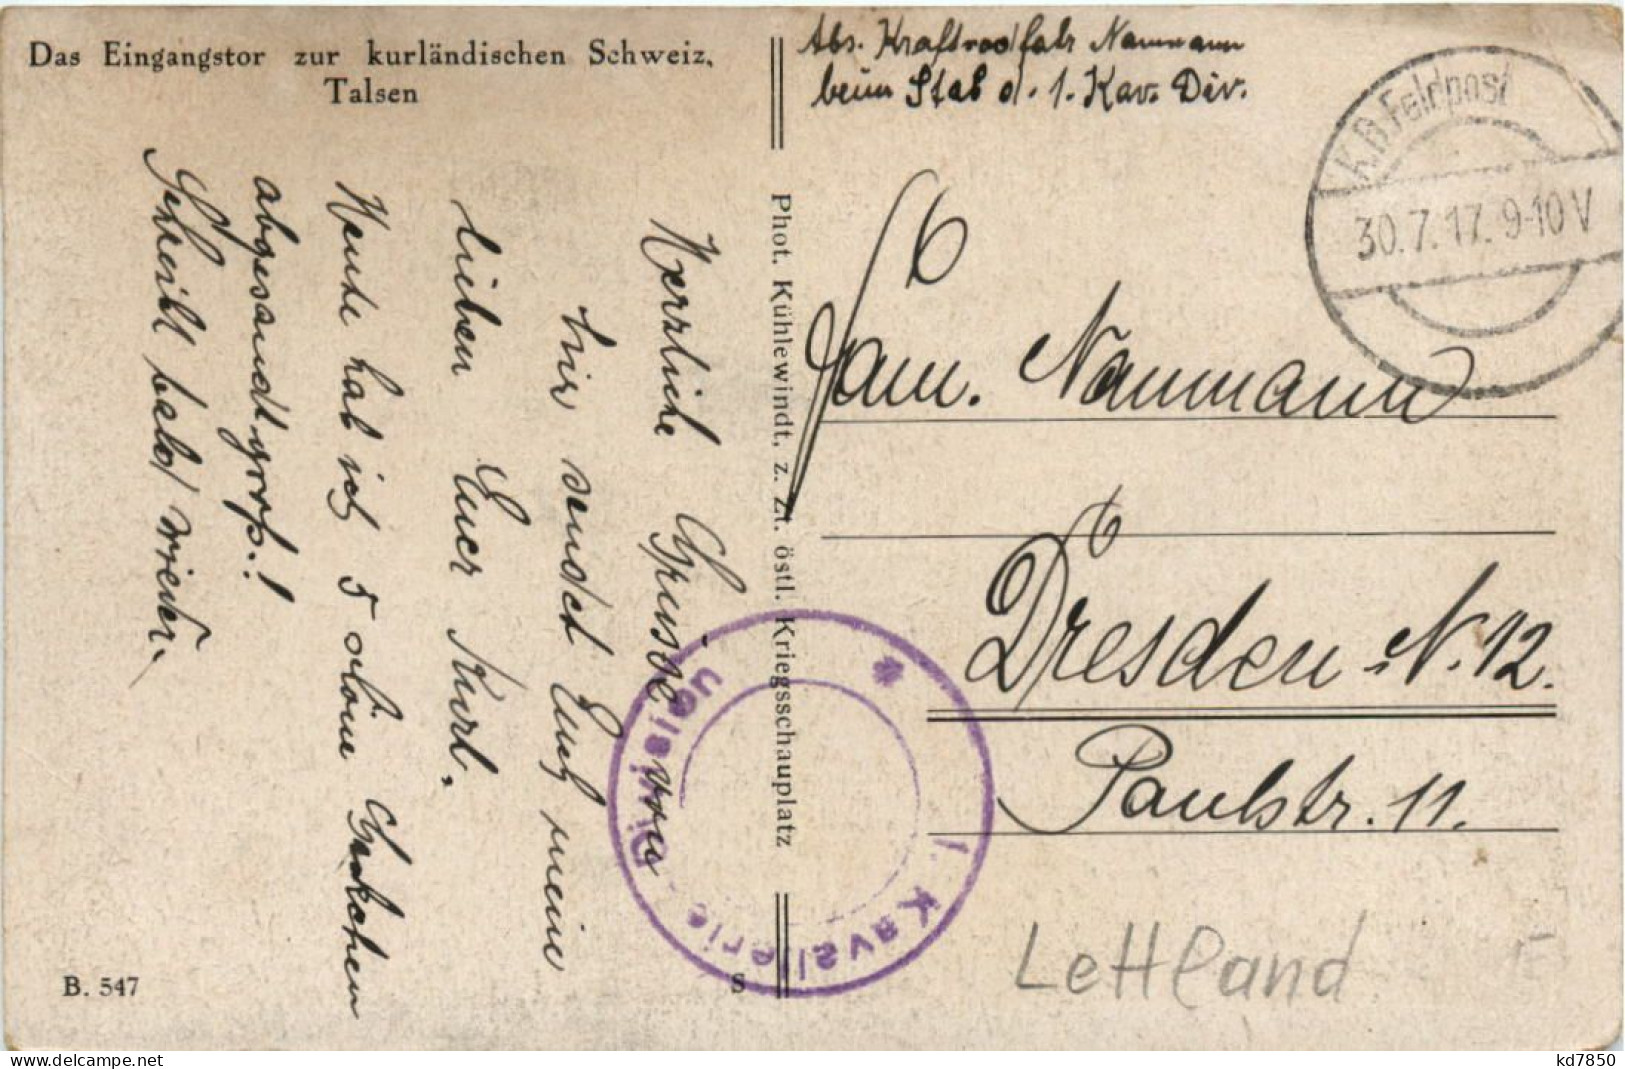 Das Eingangstor zur kurländischen Schweiz,
Talsen
Herzliche Grüsse von
hir sendet Euch meine
lieben Euer Kurt.
Heute hab ich 5
abgesandt groß!
Schreibt bald wieder.
B. 547
S
Phot. Kühlewindt, z. Zt. östl. Kriegsschauplatz
Abs. Kraftradfahr Naumann
beim Stab d. 1. Kav. Div.
K.D. Feldpost
30.7.17. 9-10 V
Fam. Naumann
Dresden N. 12.
Paulstr. 11.
1. Kavallerie-Division *
Lettland
kd7850